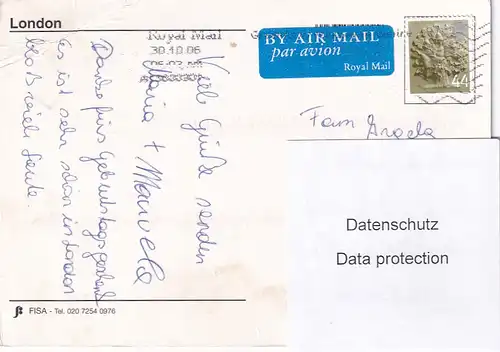 London
Royal Mail
30.10.06
BY AIR MAIL
par avion
Royal Mail
44
Viele Grüße senden
Maria + Manuela
Danke fürs Geburtstagsgeschenk
Es ist sehr schön in London
bloß viele Leute.
Fam Angela
Datenschutz
Data protection
FISA - Tel. 020 7254 0976